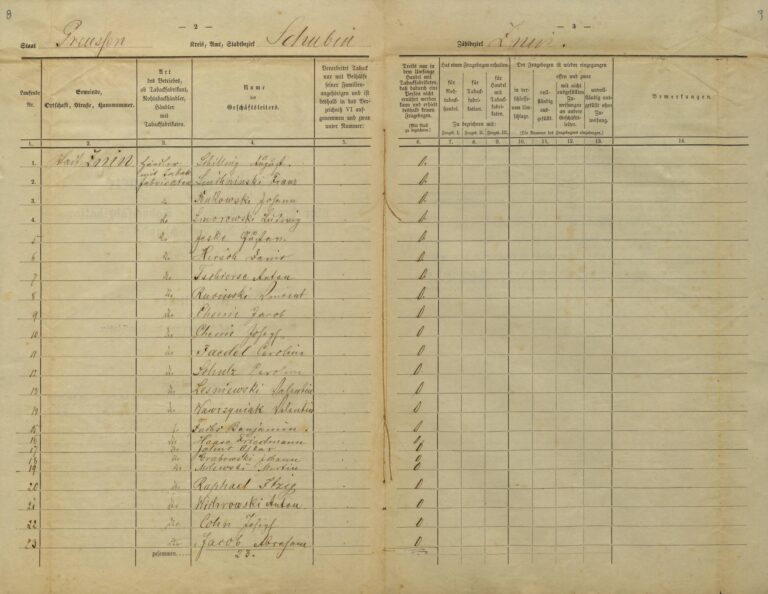 8
— 2 —
Staat Preussen Kreis, Amt, Stadtbezirk Schubin
— 3 —
9
Zählbezirk Znin.
Laufende Nr.
Gemeinde, Ortschaft, Straße, Hausnummer.
Art des Betriebes, ob Tabakfabrikant, Rohtabakhändler, Händler mit Tabakfabrikaten.
Name des Geschäftsleiters.
Verarbeitet Tabak nur mit Beihülfe seiner Familienangehörigen und ist deshalb in das Verzeichniß VI aufgenommen und zwar unter Nummer:
Treibt nur in dem Umfange Handel mit Tabakfabrikaten, daß dadurch eine Person nicht ernährt werden kann und erhält deshalb keinen Fragebogen.
Hat einen Fragebogen erhalten
für Rohtabakhandel.
für Tabakfabrikation.
für Handel mit Tabakfabrikaten.
Zu bezeichnen mit:
Frageb. I. Frageb. II. Frageb. III.
Der Fragebogen ist wieder eingegangen
in verschlossenem Umschlag.
offen und zwar
vollständig ausgefüllt.
mit nicht ausgefüllten
an andere Geschäftsleiter.
unvollständig ausgefüllt ohne Zuweisung.
(Die Nummer des Fragebogens einzutragen.)
Bemerkungen.
1. 2. 3. 4. 5. 6. 7. 8. 9. 10. 11. 12. 13. 14.
1. Stadt Znin Händler Schilling August. 0
mit Tabak
2. fabrikaten Franz 0
3. Johann 0
4. do Smorowski Ludwig 0
5 do Jeske Gustav. 0
6 do Hirsch 0
7 do Anton 0
8 do Rucinski Vincent 0
9 do Jacob 0
10 do Josef 0
11 do Faedel Carolina 0
12 do Schulz 0
13 do Lesniewski 0
14 do Wawrzyniak Valentin 0
15 Fuchs Benjamin. 0
16 do Haase Friedmann 0
17 do Oskar 0
18 do Grabowski Johann 0
19 do Milewski Martin 0
20 do Raphael Itzig 0
21 do Anton 0
22 do Cohn Josef 0
23 do Jacob Abraham 0
zusammen 23.